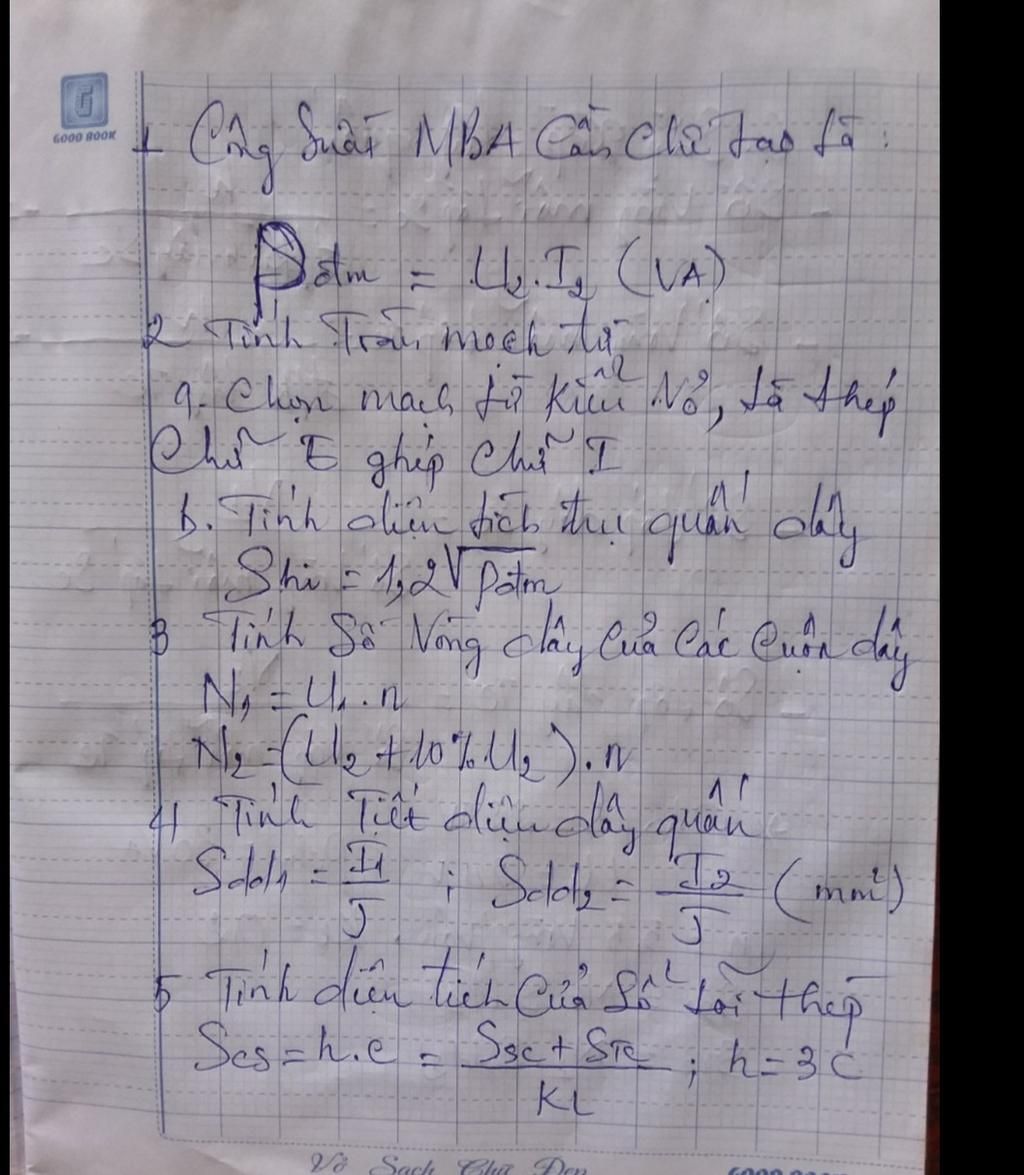 GOOD BOOK
1 Công suất MBA Cần chế tạo là:
Pđm = U2.I2 (VA)
2 Tính Toán mạch từ
a. Chọn mạch từ kiểu Vỏ, lá thép
Chữ E ghép chữ I
b. Tính diện tích trụ quấn dây
Shi = 1,2√Pđm
3 Tính Số Vòng dây của các cuộn dây
N1 = U1.n
N2 = (U2 + 10% U2).n
4 Tính Tiết diện dây quấn
Sdd1 = I1/J ; Sdd2 = I2/J (mm²)
5 Tính diện tích cửa sổ lõi thép
Scs = h.c = (Ssc + Stc)/Kl ; h = 3c